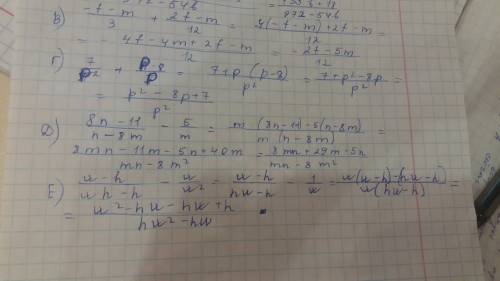 972 - 54b
В) (-f - m)/3 + (2f - m)/12 = (4(-f - m) + 2f - m)/12 =
= (4f - 4m + 2f - m)/12 = (-2f - 5m)/12
Г) 7/p² + (p-8)/p = (7 + p(p-8))/p² = (7 + p² - 8p)/p² =
= (p² - 8p + 7)/p²
Д) (8n - 11)/(n - 8m) - 5/m = (m(8n - 11) - 5(n - 8m))/(m(n - 8m)) =
(8mn - 11m - 5n + 40m)/(mn - 8m²) = (8mn + 29m - 5n)/(mn - 8m²)
Е) (u - h)/(uh - h) - u/u² = (u - h)/(hu - h) - 1/u = (u(u - h) - (hu - h))/(u(hu - h)) =
= (u² - hu - hu + h)/(hu² - hu)